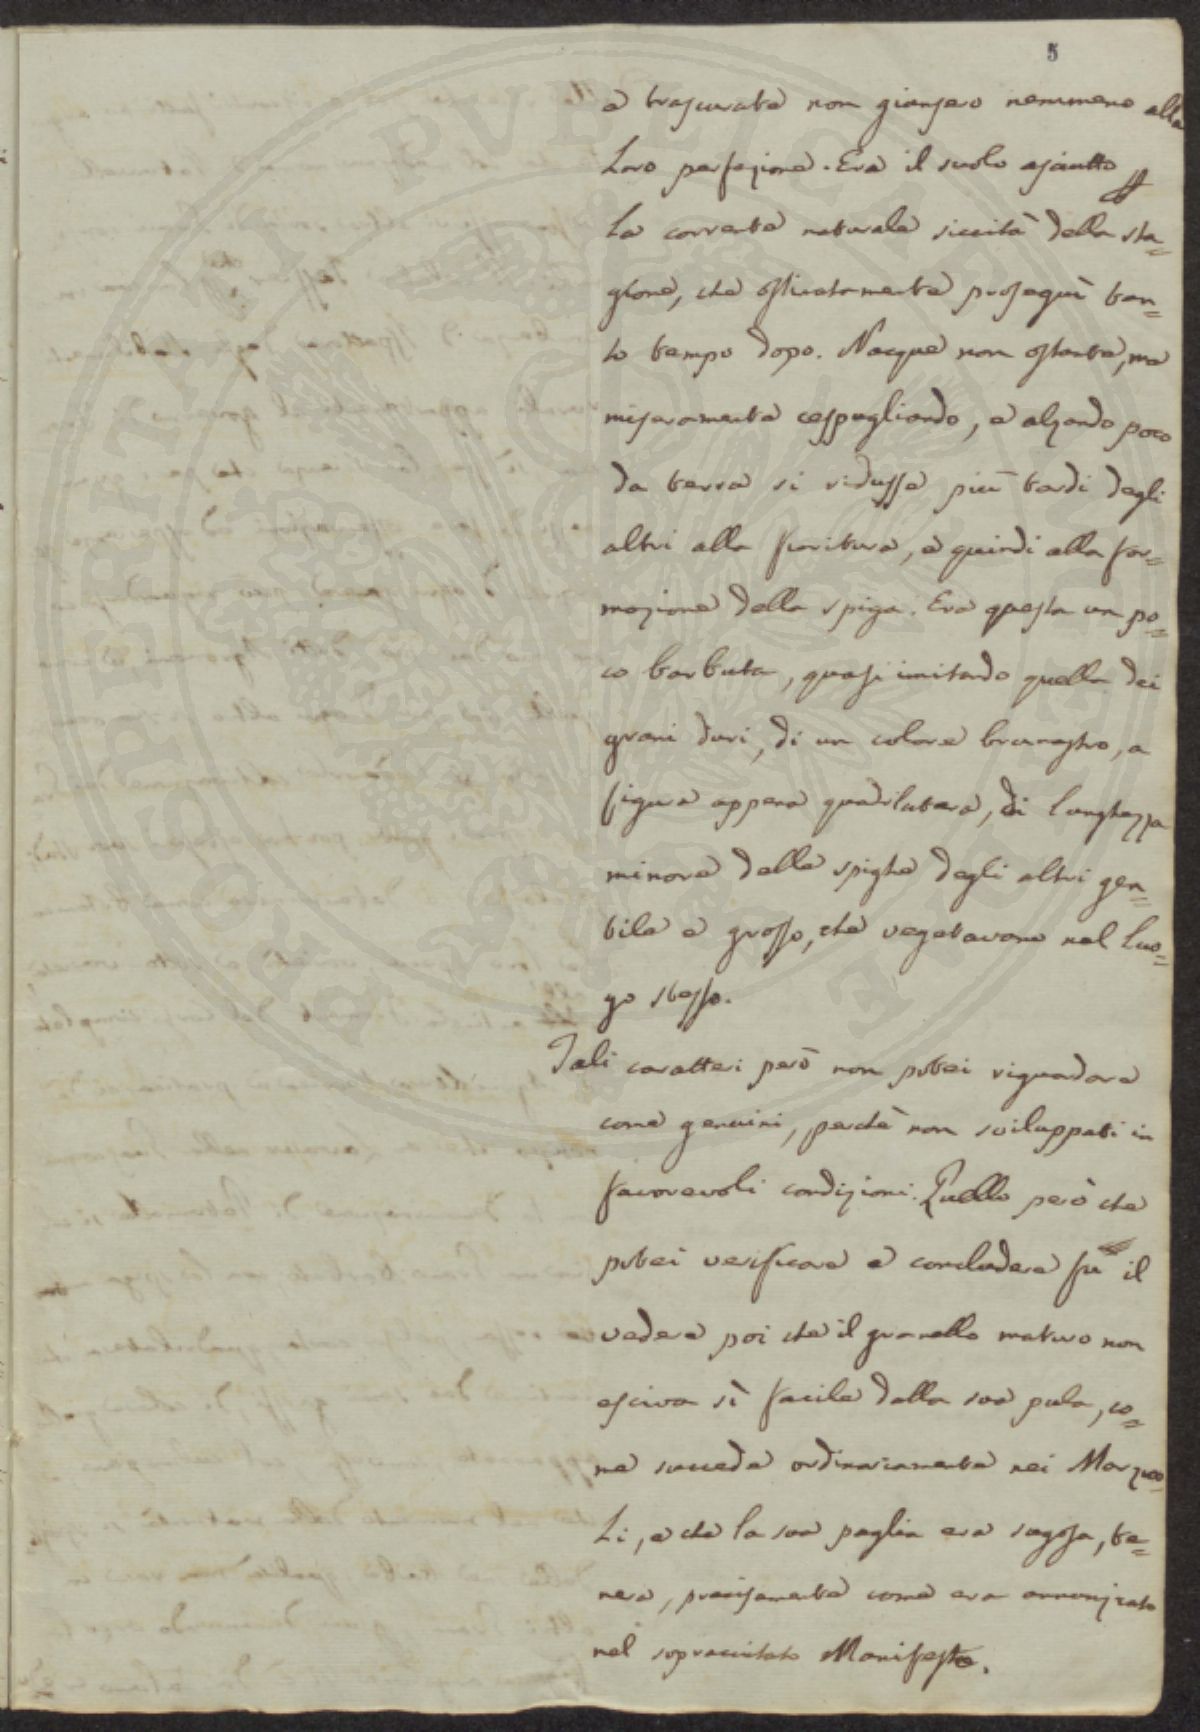 5
e trascurate non giunsero nemmeno alla
loro perfezione. Era il suolo asciutto
La corrente naturale siccità della sta=
gione, che ostinatamente proseguì tan=
to tempo dopo. Nacque non ostante, ma
miseramente cespugliando, e alzando poco
da terra si ridusse più tardi degli
altri alla fioritura, e quindi alla for=
mazione della spiga. Era questa un po=
co barbuta, quasi imitando quella dei
grani duri, di un colore brunastro, a
figura appena quadrilatera, di lunghezza
minore delle spighe degli altri gen=
tile e grosso, che vegetavano nel luo=
go stesso.
Tali caratteri però non potei riguardare
come genuini, perchè non sviluppati in
favorevoli condizioni. Quello però che
potei verificare e concludere fu il
vedere poi che il granello maturo non
esciva sì facile dalla sua pula, co=
me succede ordinariamente nei Marzuo=
li, e che la sua paglia era sugosa, te=
nera, precisamente come era annunziato
nel sopraccitato Manifesto.